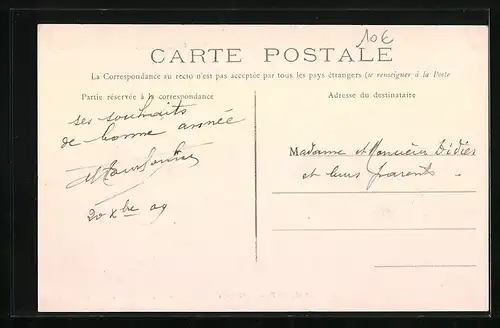 10€
CARTE POSTALE
La Correspondance au recto n'est pas acceptée par tous les pays étrangers (se renseigner à la Poste
Partie réservée à la correspondance
Adresse du destinataire
ses souhaits
de bonne année
20 Xbre 09
Madame et Monsieur Didier
et leurs parents